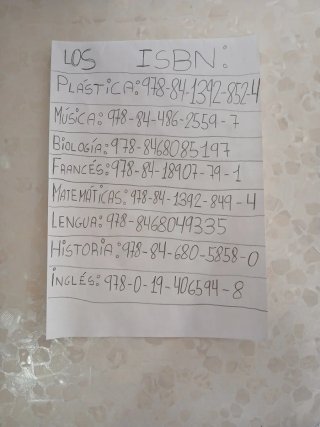 LOS ISBN:
PLÁSTICA: 978-84-1392-852-4
MÚSICA: 978-84-486-2559-7
BIOLOGÍA: 978-8468085197
FRANCÉS: 978-84-18907-79-1
MATEMÁTICAS: 978-84-1392-849-4
LENGUA: 978-8468049335
HISTORIA: 978-84-680-5858-0
INGLÉS: 978-0-19-406594-8